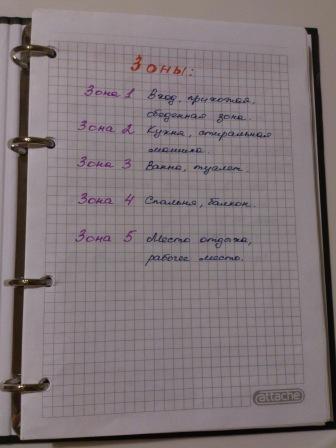 Зоны:
Зона 1 Вход, прихожая,
обеденная зона.
Зона 2 Кухня, стиральная
машина.
Зона 3 Ванна, туалет.
Зона 4 Спальня, балкон.
Зона 5 Место отдыха,
рабочее место.
attache